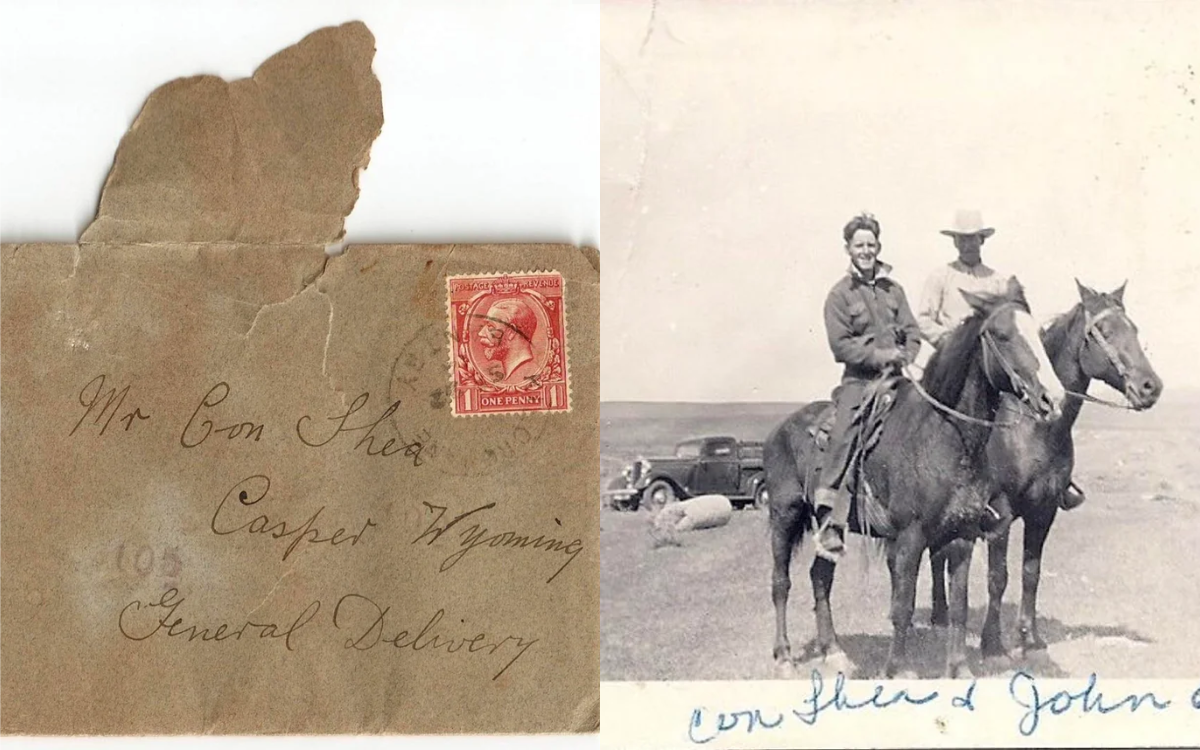 POSTAGE REVENUE
1 ONE PENNY 1
Mr Con Shea
Casper Wyoming
105
General Delivery
Con Shea & John